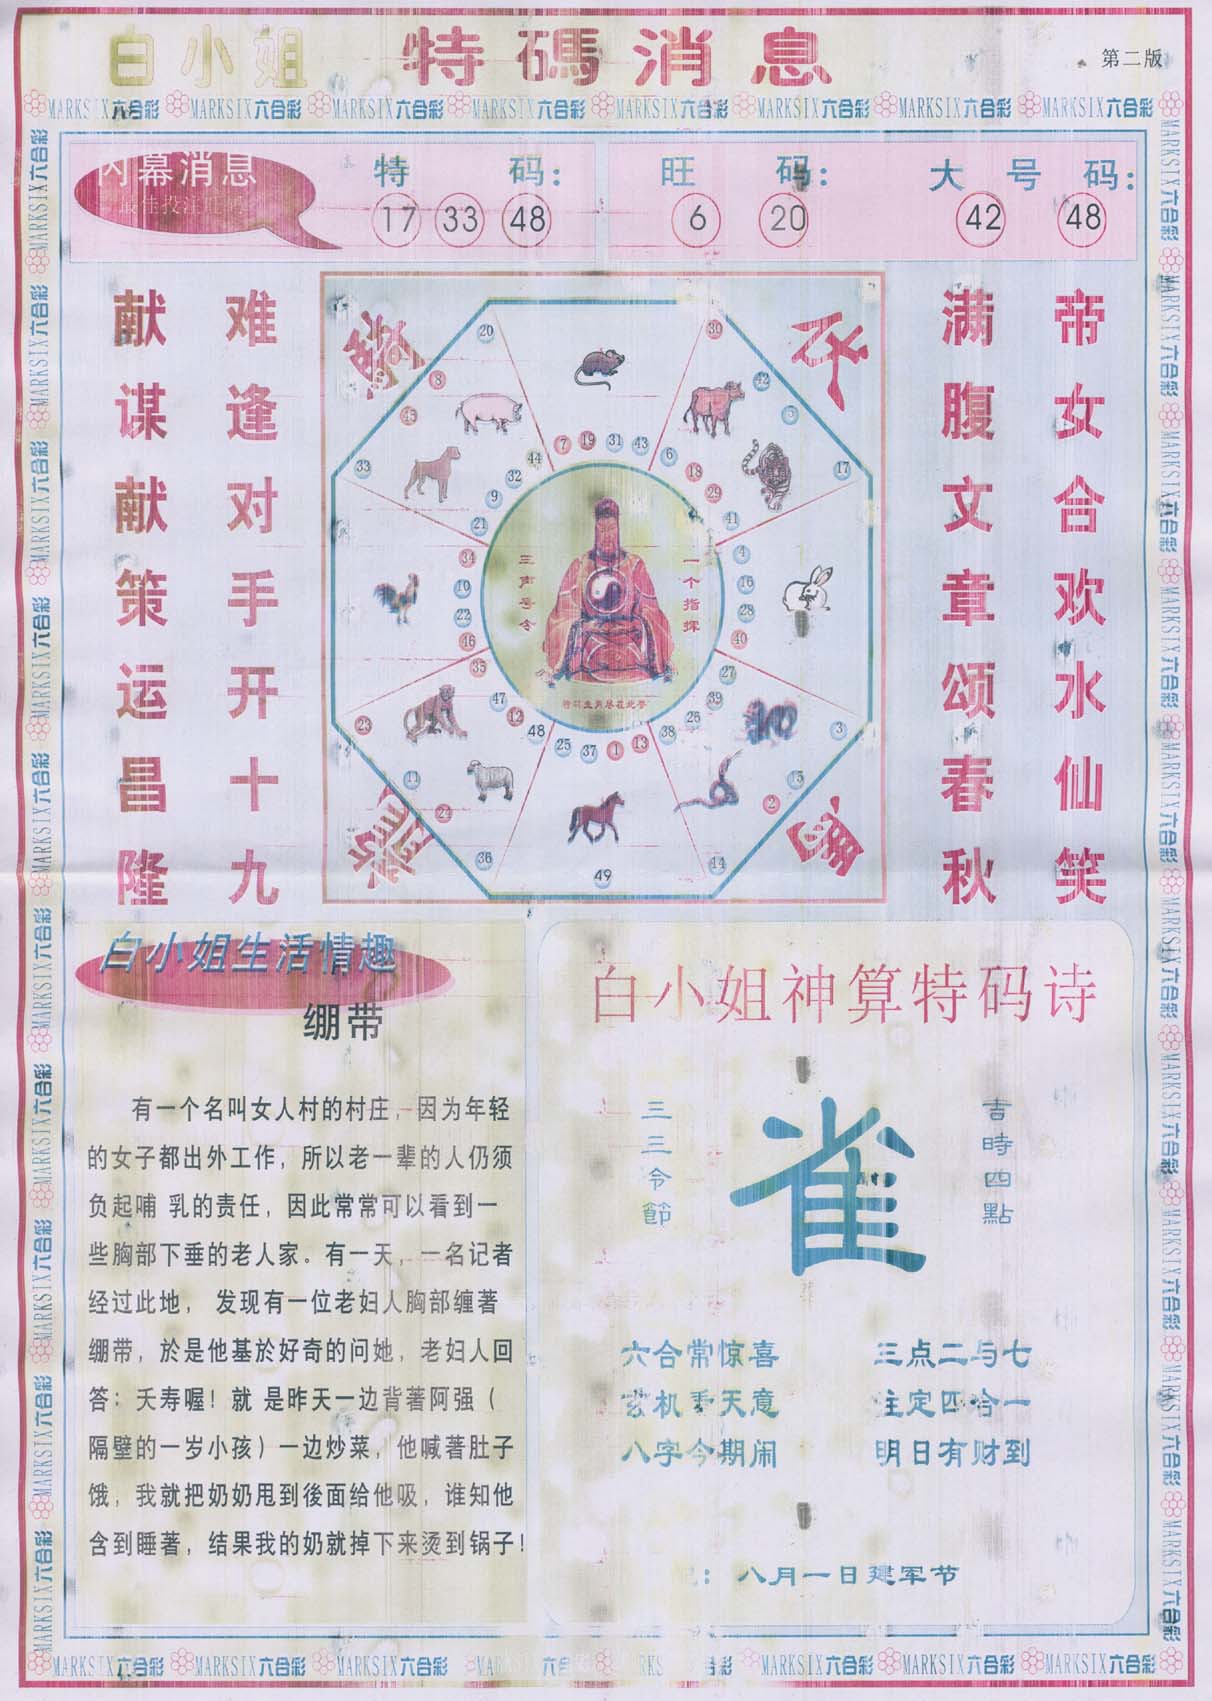 白小姐 特碼消息
第二版
MARKSIX六合彩 MARKSIX六合彩 MARKSIX六合彩 MARKSIX六合彩 MARKSIX六合彩 MARKSIX六合彩 MARKSIX六合彩 MARKSIX六合彩
内幕消息
最佳投注
特码:
17 33 48
旺码:
6 20
大号码:
42 48
献谋献策运昌隆
难逢对手开十九
满腹文章颂春秋
帝女合欢水仙笑
20 30
8 42
45 5
33 17
7 19 31 43
44 6
32 18
9 29
21 41
34 4
10 16
22 28
46 40
35 27
47 39
12 26
48 38
25 37 1 13
23 3
11 15
24 2
36 14
49
三声号令
一个指挥
白小姐生活情趣
绷带
有一个名叫女人村的村庄，因为年轻
的女子都出外工作，所以老一辈的人仍须
负起哺 乳的责任，因此常常可以看到一
些胸部下垂的老人家。有一天，一名记者
经过此地， 发现有一位老妇人胸部缠著
绷带，於是他基於好奇的问她，老妇人回
答：夭寿喔！就 是昨天一边背著阿强（
隔壁的一岁小孩）一边炒菜，他喊著肚子
饿，我就把奶奶甩到後面给他吸，谁知他
含到睡著，结果我的奶就掉下来烫到锅子！
白小姐神算特码诗
三三令節
雀
吉時四點
六合常惊喜 三点二与七
玄机 天意 注定四合一
八字今期闹 明日有财到
：八月一日建军节
MARKSIX六合彩 MARKSIX六合彩 MARKSIX六合彩 MARKSIX六合彩 MARKSIX六合彩 MARKSIX六合彩 MARKSIX六合彩 MARKSIX六合彩